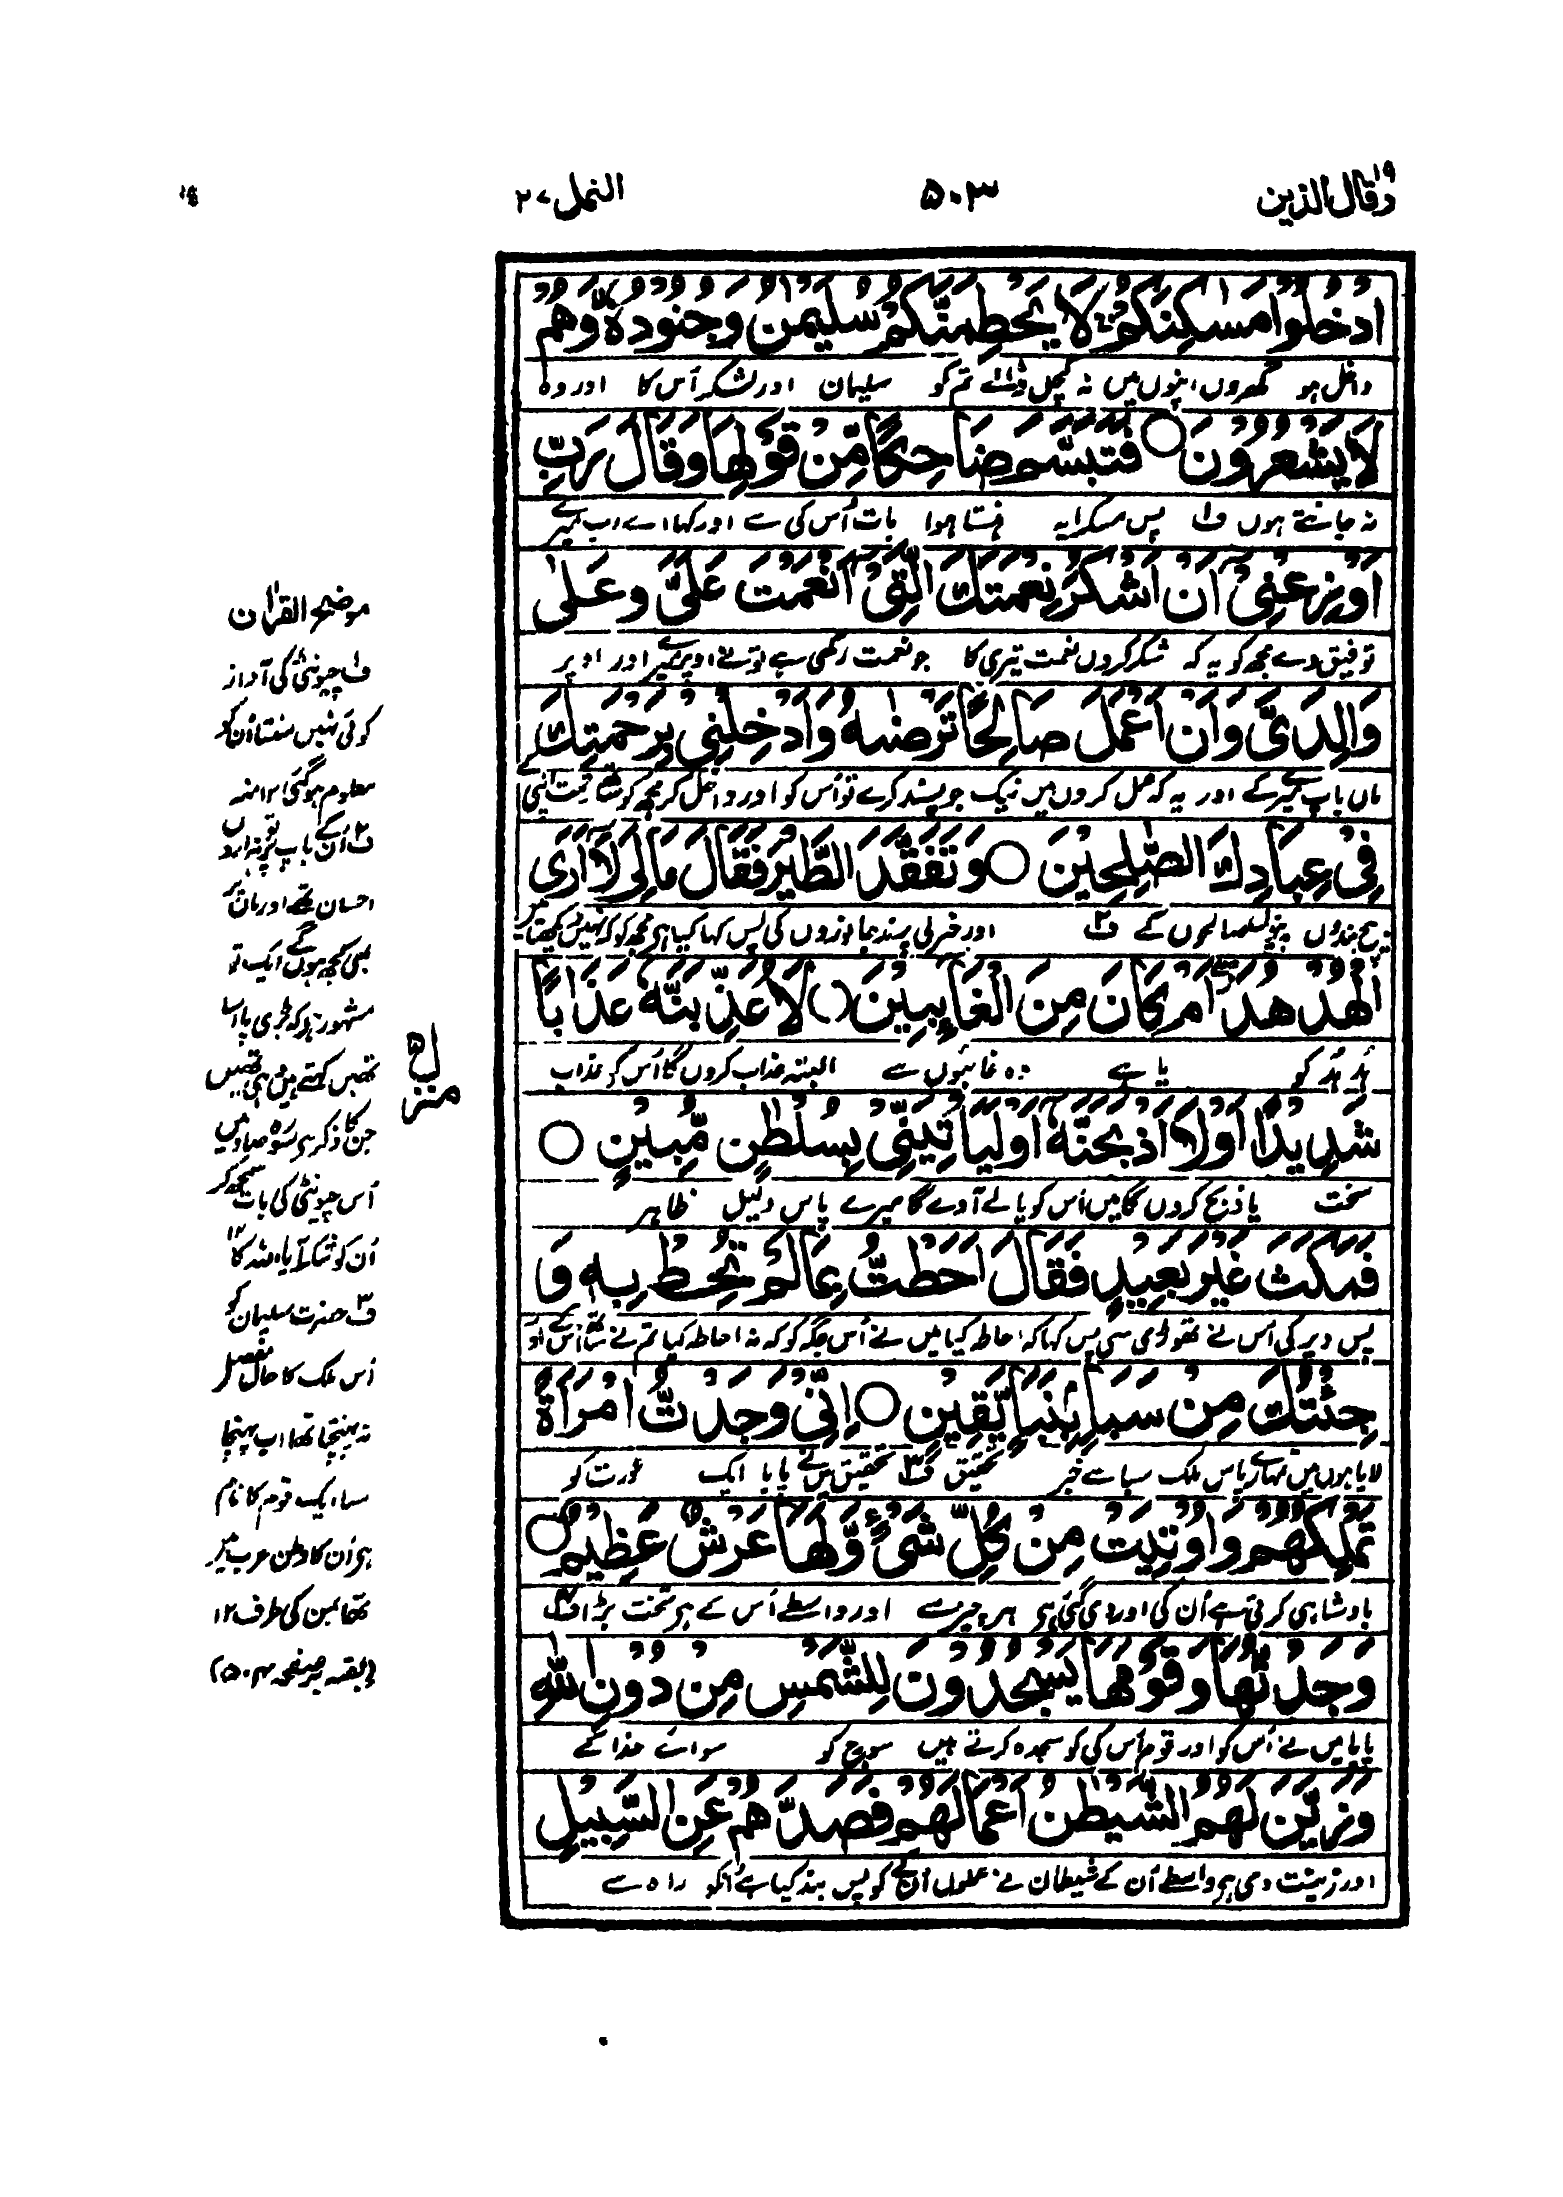 وقال الذین ۱۹
۵۰۳
النمل ۲۷
ادْخُلُوْا مَسٰكِنَكُمْ ۚ لَا يَحْطِمَنَّكُمْ سُلَيْمٰنُ وَجُنُوْدُهٗ ۙ وَهُمْ
داخل ہو گھروں اپنوں میں نہ کچل ڈالے تم کو سلیمان اور لشکر اُس کا اور وہ
لَا يَشْعُرُوْنَ ○ فَتَبَسَّمَ ضَاحِكًا مِّنْ قَوْلِهَا وَقَالَ رَبِّ
نہ جانتے ہوں ف۱ پس مسکرایہ ہنستا ہوا بات اُس کی سے اور کہا اے رب میرے
اَوْزِعْنِيْٓ اَنْ اَشْكُرَ نِعْمَتَكَ الَّتِيْٓ اَنْعَمْتَ عَلَيَّ وَعَلٰى
توفیق دے مجھ کو یہ کہ شکر کروں نعمت تیری کا جو نعمت رکھی ہے تو نے اوپر میرے اور اوپر
وَالِدَيَّ وَاَنْ اَعْمَلَ صَالِحًا تَرْضٰىهُ وَاَدْخِلْنِيْ بِرَحْمَتِكَ
ماں باپ میرے کے اور یہ کہ عمل کروں میں نیک جو پسند کرے تو اُس کو اور داخل کر مجھ کو ساتھ رحمت اپنی کے
فِيْ عِبَادِكَ الصّٰلِحِيْنَ ○ وَتَفَقَّدَ الطَّيْرَ فَقَالَ مَا لِيَ لَآ اَرَى
بیچ بندوں اپنے صالحوں کے ف۲ اور خبر لی پرند جانوروں کی پس کہا کیا ہے مجھ کو کہ نہیں دیکھتا میں
الْهُدْهُدَ ۖ اَمْ كَانَ مِنَ الْغَآئِبِيْنَ ○ لَاُعَذِّبَنَّهٗ عَذَابًا
ہُد ہُد کو یا ہے وہ غائبوں سے البتہ عذاب کروں گا اُس کو عذاب
شَدِيْدًا اَوْ لَاَاذْبَحَنَّهٗٓ اَوْ لَيَاْتِيَنِّيْ بِسُلْطٰنٍ مُّبِيْنٍ ○
سخت یا ذبح کروں گا میں اُس کو یا لے آوے گا میرے پاس دلیل ظاہر
فَمَكَثَ غَيْرَ بَعِيْدٍ فَقَالَ اَحَطْتُّ بِمَا لَمْ تُحِطْ بِهٖ وَ
پس دیر کی اُس نے تھوڑی سی پس کہا کہ احاطہ کیا میں نے اُس جگہ کو کہ نہ احاطہ کیا تم نے ساتھ اُس کے اور
جِئْتُكَ مِنْ سَبَاٍۭ بِنَبَاٍ يَّقِيْنٍ ○ اِنِّيْ وَجَدْتُّ امْرَاَةً
لایا ہوں میں تمہارے پاس ملک سبا سے خبر تحقیق ف۳ تحقیق میں نے پایا ایک عورت کو
تَمْلِكُهُمْ وَاُوْتِيَتْ مِنْ كُلِّ شَيْءٍ وَّلَهَا عَرْشٌ عَظِيْمٌ ○
بادشاہی کرتی ہے اُن کی اور دی گئی ہے ہر چیز سے اور واسطے اُس کے ہے تخت بڑا ف۴
وَجَدْتُّهَا وَقَوْمَهَا يَسْجُدُوْنَ لِلشَّمْسِ مِنْ دُوْنِ اللّٰهِ
پایا میں نے اُس کو اور قوم اُس کی کو سجدہ کرتے ہیں سورج کو سوائے خدا کے
وَزَيَّنَ لَهُمُ الشَّيْطٰنُ اَعْمَالَهُمْ فَصَدَّهُمْ عَنِ السَّبِيْلِ
اور زینت دی ہے واسطے اُن کے شیطان نے عملوں اُن کے کو پس بند کیا ہے اُنکو راہ سے
منزل ۵
موضح القرآن
ف۱ چیونٹی کی آواز
کوئی نہیں سنتا اُن کو
معلوم ہو گئی ۱۲ منہ
ف۲ اُن کے باپ پر تو
احسان تھے اور ماں پر
بھی کچھ ہوں گے ایک تو
مشہور ہے کہ بڑی پارسا
تھیں کہتے ہیں وہی تھیں
جن کا ذکر ہے سورہ صاد میں
اُس چیونٹی کی بات سمجھ کر
اُن کو شکر آیا اللہ کا ۱۲
ف۳ حضرت سلیمان کو
اُس ملک کا حال مفصل
نہ پہنچا تھا اب پہنچا
سبا ایک قوم کا نام
ہے اُن کا وطن عرب میں
تھا یمن کی طرف ۱۲
(بقیہ بر صفحہ ۵۰۴)